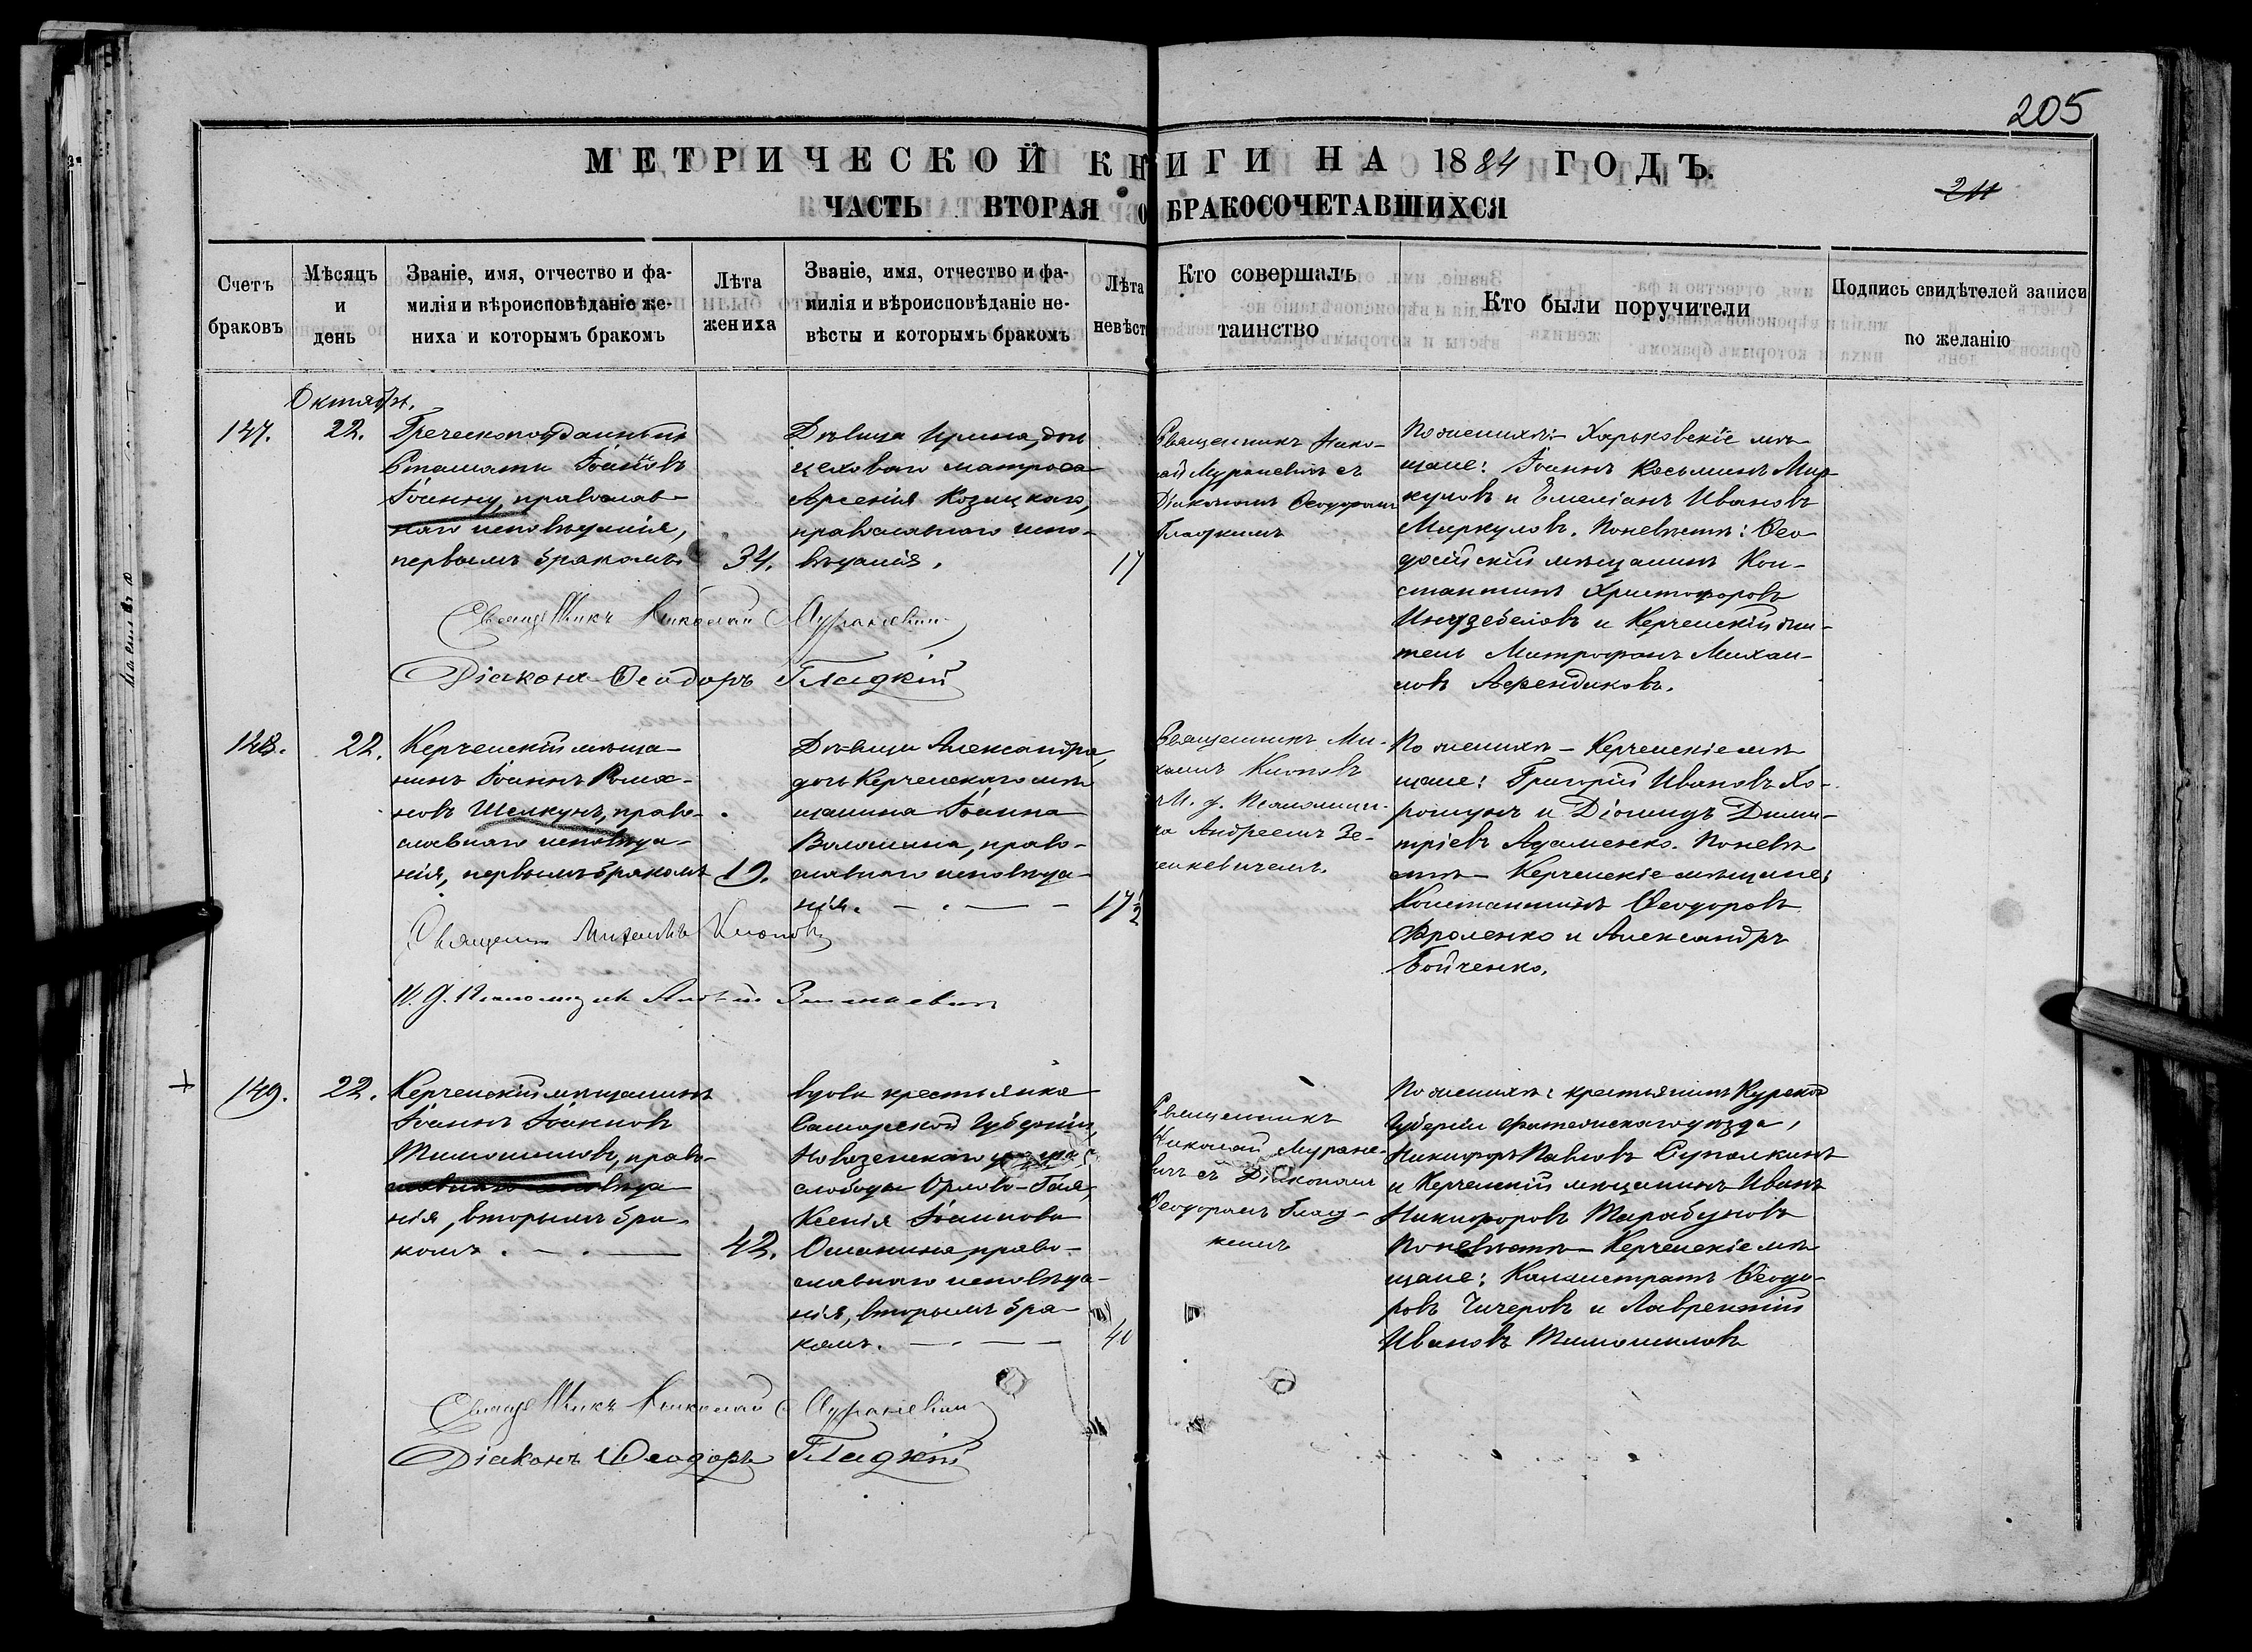 205
МЕТРИЧЕСКОЙ КНИГИ НА 1884 ГОДЪ.
211
ЧАСТЬ ВТОРАЯ О БРАКОСОЧЕТАВШИХСЯ
Счетъ браковъ
Мѣсяцъ и день
Званіе, имя, отчество и фа-
милія и вѣроисповѣданіе же-
ниха и которымъ бракомъ
Лѣта жениха
Званіе, имя, отчество и фа-
милія и вѣроисповѣданіе не-
вѣсты и которымъ бракомъ
Лѣта невѣст
Кто совершалъ таинство
Кто были поручители
Подпись свидѣтелей записи по желанію
Октября.
147.
22.
Греческоподданный
Стамати Іоанновъ
Іоанну, православ-
наго исповѣданія,
первымъ бракомъ.
34.
Дѣвица Ирина, дочь
цеховаго матроса
Арсенія Козицкаго,
православнаго испо-
вѣданія.
17
Священникъ Нико-
лай Мураневичъ съ
Діакономъ Ѳеодоромъ
Гладкимъ
По женихѣ: Харьковскіе мѣ-
щане: Іоаннъ Косьминъ Мир-
куловъ и Емеліанъ Ивановъ
Миркуловъ. По невѣстѣ: Ѳео-
досійскій мѣщанинъ Кон-
стантинъ Христофоровъ
и Керченскій жи-
тель Митрофанъ Михаи-
ловъ Афендиковъ.
Священникъ Николай Мураневичъ
Діаконъ Ѳеодоръ Гладкій
148.
22.
Керченскій мѣща-
нинъ Іоаннъ Рома-
новъ Шелкунъ, право-
славнаго исповѣда-
нія, первымъ бракомъ
19.
Дѣвица Александра,
дочь Керченскаго мѣ-
щанина Іоанна
Волошина, право-
славнаго исповѣда-
нія.
17½
Священникъ Ми-
хаилъ Клоповъ
съ И. д. Псаломщи-
ка Андреемъ Зе-
ленкевичемъ.
По женихѣ - Керченскіе мѣ-
щане: Григорій Ивановъ Хо-
рошунъ и Діомидъ Дими-
тріевъ Адаменко. По невѣ-
стѣ - Керченскіе мѣщане:
Константинъ Ѳеодоровъ
Фроленко и Александръ
Бойченко.
Священникъ Михаилъ Клоповъ
И. д. Псаломщика Андрей
149.
22.
Керченскій мѣщанинъ
Іоаннъ Іоанновъ
Тимошиловъ, право-
славнаго исповѣда
нія, вторымъ бра-
комъ.
42.
вдова крестьянка
Самарской Губерніи,
Новоузенскаго уѣзда,
слободы Орлово-Гая,
Ксенія Іоаннова
Ошанина, право-
славнаго исповѣда-
нія, вторымъ бра-
комъ.
40
Священникъ
Николай Муране-
вичъ съ Діакономъ
Ѳеодоромъ Глад-
кимъ
По женихѣ: крестьянинъ Курской
Губерніи Фатежскаго уѣзда,
Никифоръ Павловъ Супалкинъ
и Керченскій мѣщанинъ Иванъ
Никифоровъ Тарабуновъ
По невѣстѣ - Керченскіе мѣ-
щане: Каллистратъ Ѳеодо-
ровъ Чичеровъ и Лаврентій
Ивановъ Тимошиловъ
Священникъ Николай Мураневичъ
Діаконъ Ѳеодоръ Гладкій